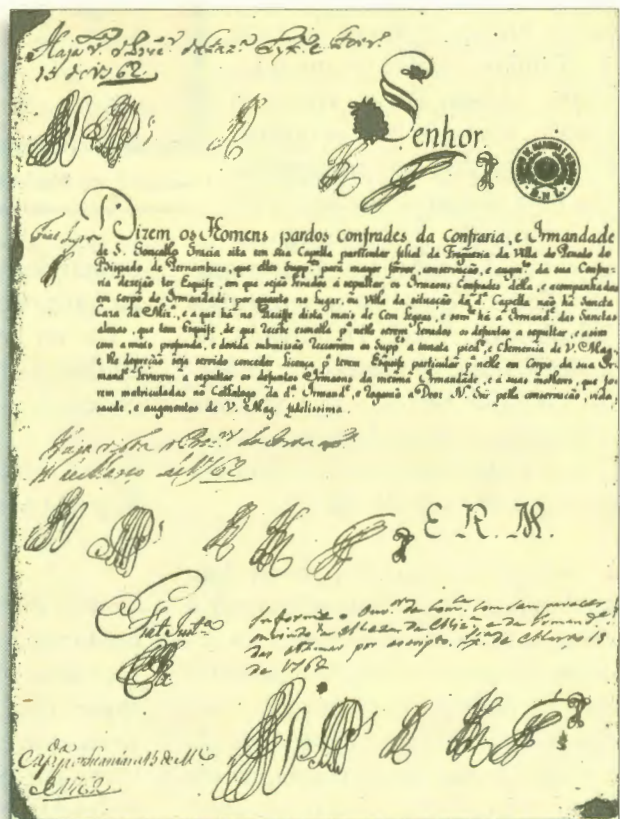 Haja V.ta o
15 de 1762
Senhor
Dizem os Homens pardos confrades da Confraria, e Irmandade
de S. Gonçallo Gracia sita em sua Capella particular filial da Freguezia da Villa do Penedo do
Bispado de Pernambuco, que elles Supp.es para mayor fervor, conservação, e augm.to da sua Confra-
ria dezejão ter Esquife, em que sejão levados a sepultar os Irmaons Confrades della, e acompanhados
em corpo de Irmandade: por quanto no lugar, ou Villa da situação da d.a Capella não há Sancta
Caza da Miz.a, e a que há no Reciffe dista mais de Cem legoas, e som.te há a Irmand.e das Sanctas
almas, que tem Esquife, de que recebe esmolla p.a nelle serem levados os defuntos a sepultar, e asim
com a mais profunda, e devida submissão recorrem os Supp.es a innata pied.e, e Clemencia de V. Mag.e
e lhe depreção seja servido conceder licença p.a terem Esquife particular p.a nelle em Corpo da sua Ir-
mand.e levarem a sepultar os defuntos Irmaons da mesma Irmandade, e a suas molheres, que fo-
rem matriculadas no Cathalogo da d.a Irmand.e, e rogarão a Deos N. Snr pella conservação, vida,
saude, e augmentos de V. Mag. fidelissima.
Março de 1762
E. R. M.
Fiat Just.a
Informe o Ouv.or da Com.ca com seu parecer
ouvindo a Meza da Miz.a e da Irmand.e
das Almas por escripto. Lx.a de Março 13
de 1762
15 de M.ço
de 1762